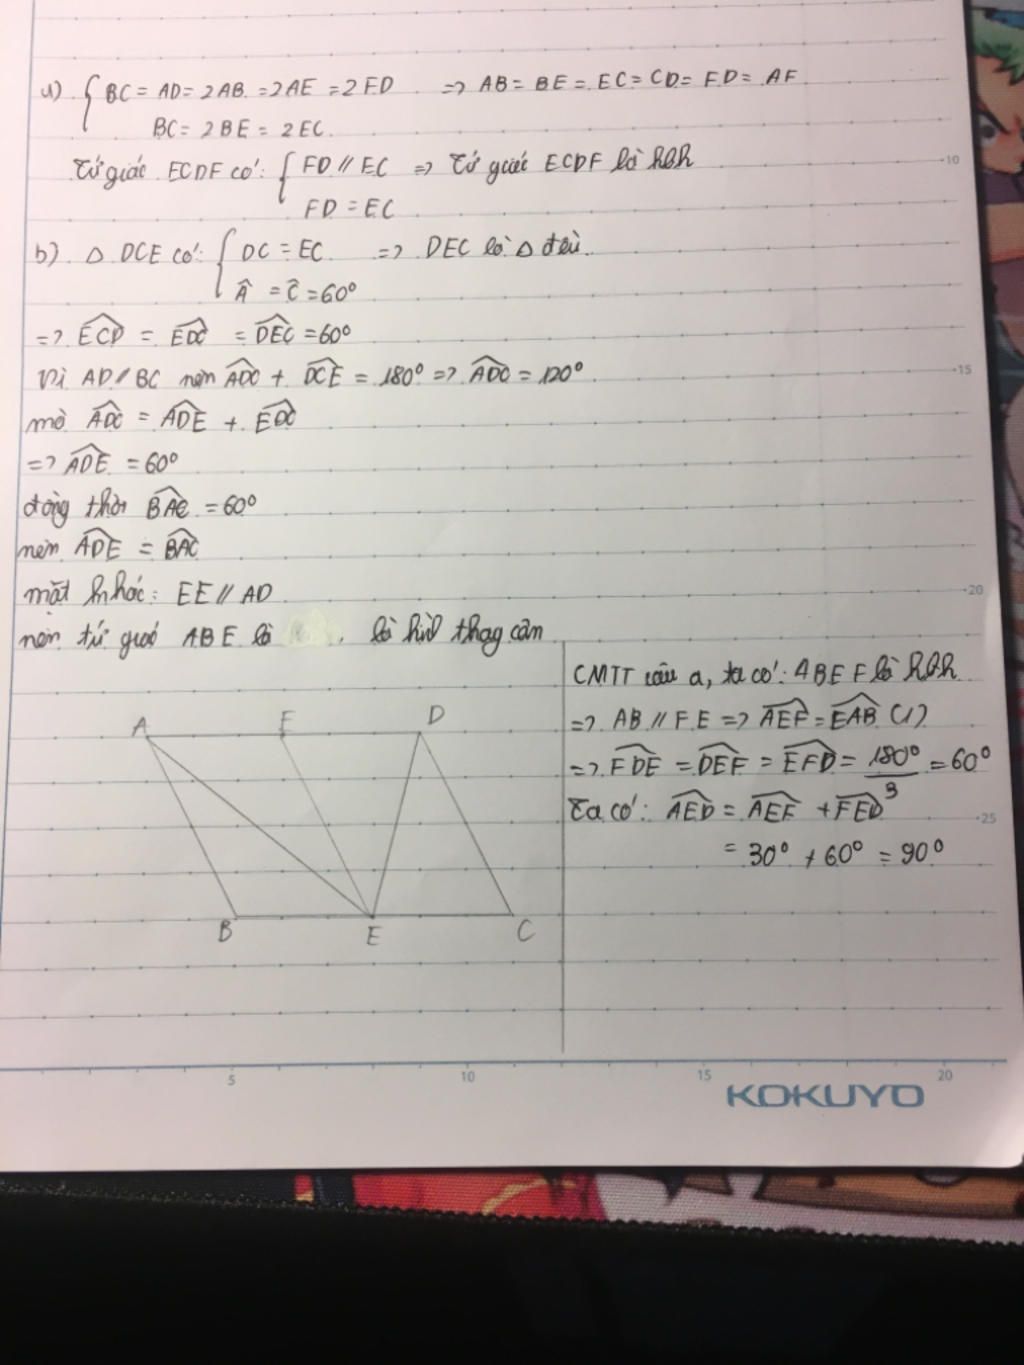 a) { BC = AD = 2AB = 2AE = 2FD => AB = BE = EC = CD = FD = AF
BC = 2BE = 2EC.
Tứ giác ECDF có: { FD // EC => Tứ giác ECDF là hbh
FD = EC
b) △ DCE có: { DC = EC => DEC là △ đều.
Â = Ĉ = 60°
=> ECD = EDC = DEC = 60°
Vì AD // BC nên ADC + DCE = 180° => ADC = 120°
mà ADC = ADE + EDC
=> ADE = 60°
đồng thời BAC = 60°
nên ADE = BAC
mặt khác: EE // AD
nên tứ giác ABE là là hình thang cân
CMTT câu a, ta có: ABEF là hbh
=> AB // FE => AEF = EAB (1)
=> FDE = DEF = EFD = 180°/3 = 60°
Ta có: AED = AEF + FED
= 30° + 60° = 90°
A F D
B E C
10
15
20
25
5 10 15 20
KOKUYO